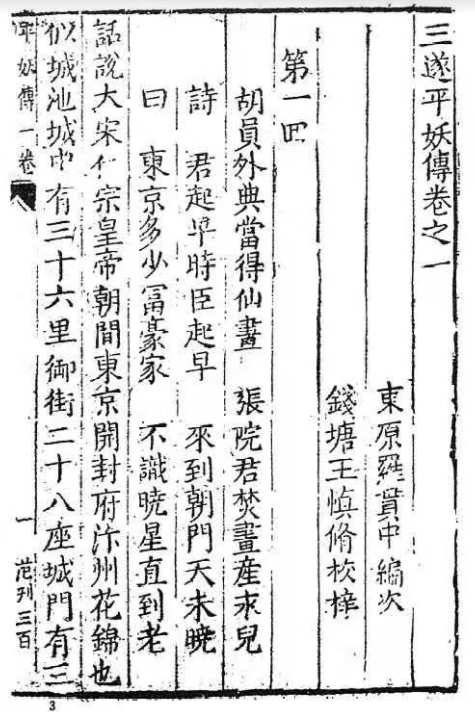 三遂平妖傳卷之一
東原羅貫中編次
錢塘王慎脩校梓
第一囬
胡員外典當得仙畫 張院君焚畫產永兒
詩 君起早時臣起早 來到朝門天未曉
曰 東京多少冨豪家 不識曉星直到老
話說大宋仁宗皇帝朝間東京開封府汴州花錦也
似城池城中有三十六里御街二十八座城門有三
平妖傳一卷 一 范刊三百
3